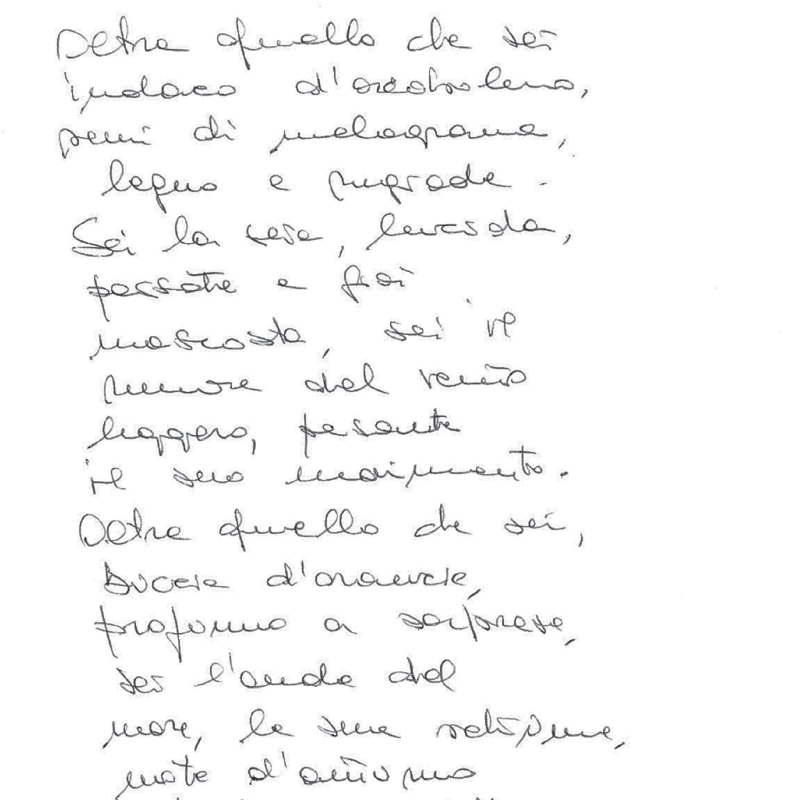 Oltre quello che sei
indaco d'arcobaleno,
semi di melograna,
legno e rugiada.
Sei la seta,
passate e poi
nascosta, sei il
rumore del vento
leggero, pesante
il suo movimento.
Oltre quello che sei,
buccia d'arancia,
profumo a sorpresa,
sei l'onda del
mare, la sua
note d'autunno